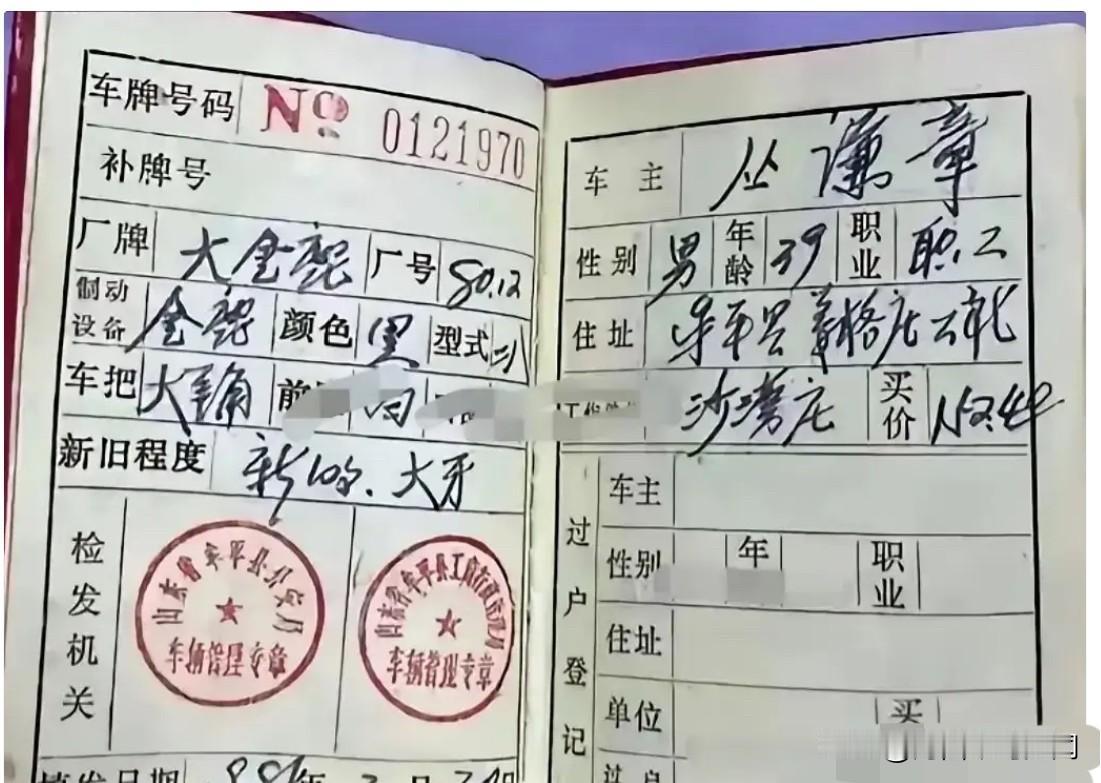 车牌号码 No 0121970
补牌号
厂牌 大金鹿 厂号 80.12
制动设备 金鹿 颜色 黑 型式 二八
车把 大羊角 前
新旧程度 新的、大牙
检发机关
山东省牟平县公安局
车辆管理专章
山东省牟平县工商行政管理局
车辆管理专章
填发日期 年 月
车主 丛谦章
性别 男 年龄 39 职业 职工
住址 牟平县 格庄公社
沙湾庄 买价
过户登记
车主
性别 年 职业
住址
单位 买
过户